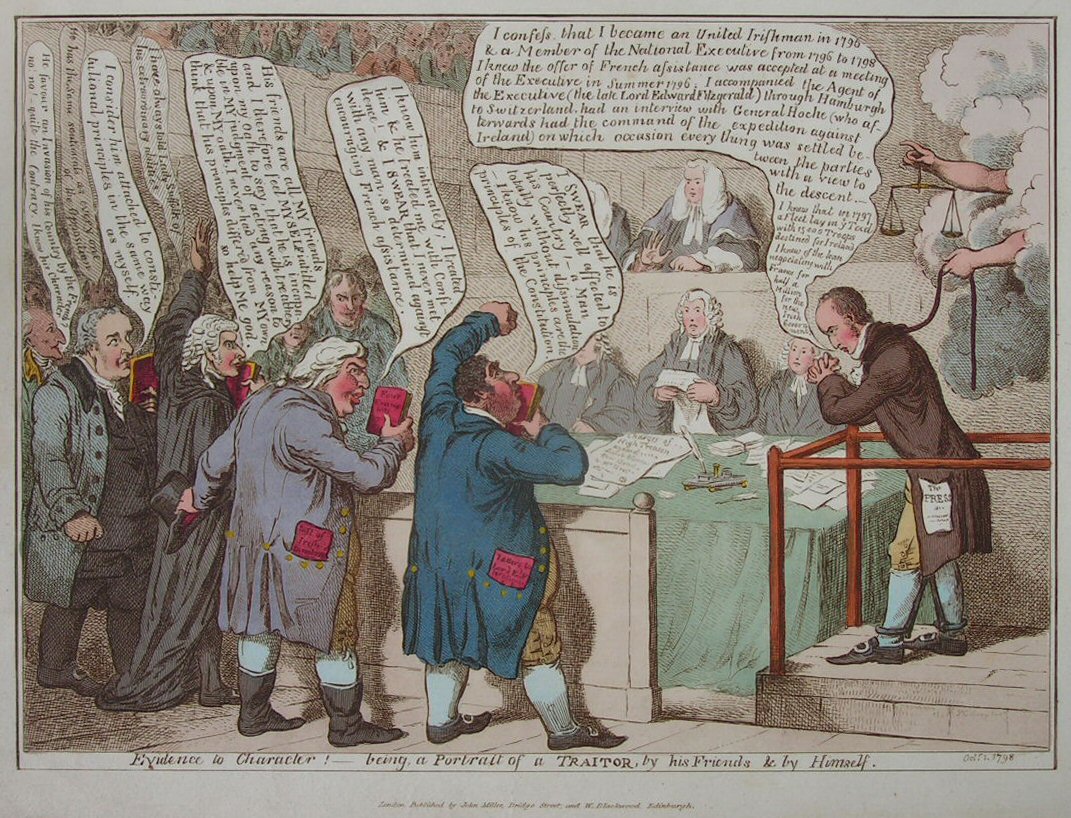 I confess, that I became an United Irishman in 1796
& a Member of the National Executive from 1796 to 1798
I knew the offer of French assistance was accepted at a meeting
of the Executive in Summer 1796; I accompanied the Agent of
the Executive (the late Lord Edward Fitzgerald) through Hamburgh
to Switzerland, had an interview with General Hoche (who af-
terwards had the command of the expedition against
Ireland) on which occasion every thing was settled be-
tween the parties
with a view to
the descent.—
I knew that in 1797
a Fleet lay in y Texel
with 15,000 Troops
destined for Ireland
I knew of the loan
negociating with
France for
half a
Million
for the
new
Irish
Govern
ment
I SWEAR that he is
perfectly well affected to
his Country — a Man
totally without dissimulation
— I know his principles are the
principles of the Constitution.
I know him intimately; I treated
him & he treated me, with Confi-
dence — & I SWEAR that I never met
with any man, so determined against
encouraging French assistance.
His friends are all MY friends
and I therefore feel MYSELF intitled
upon my oath, to say
upon MY judgment of
& upon, MY oath, I never had any reason to
think that his principles differ'd from MY own
so help Me God.
I have always said
his extraordinary
I consider him attached to consti-
tutional principles in the same way
as myself
He has the same sentiments as every one
He favour an Invasion of his Country by the French
no-no! — quite the Contrary I know his Character
Charges of
High Treason
The
PRESS
List of
Irish
Letters to
Evidence to Character! — being, a Portrait of a TRAITOR, by his Friends & by Himself.
Oct. 1. 1798
London, Published by John Miller, Bridge Street, and W. Blackwood Edinburgh.